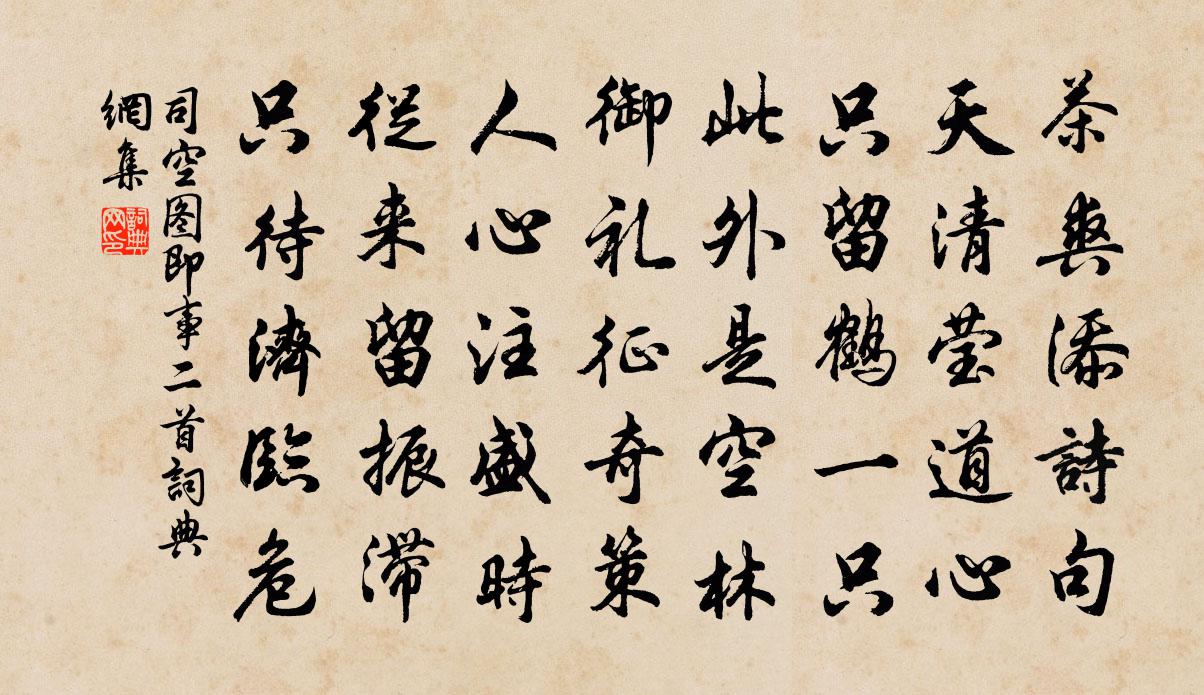 茶爽添詩句
天清莹道心
只留鶴一只
此外是空林
御礼征奇策
人心注盛時
從来留振滞
只待濟臨危
司空图即事二首詞典
網集
詞典网印